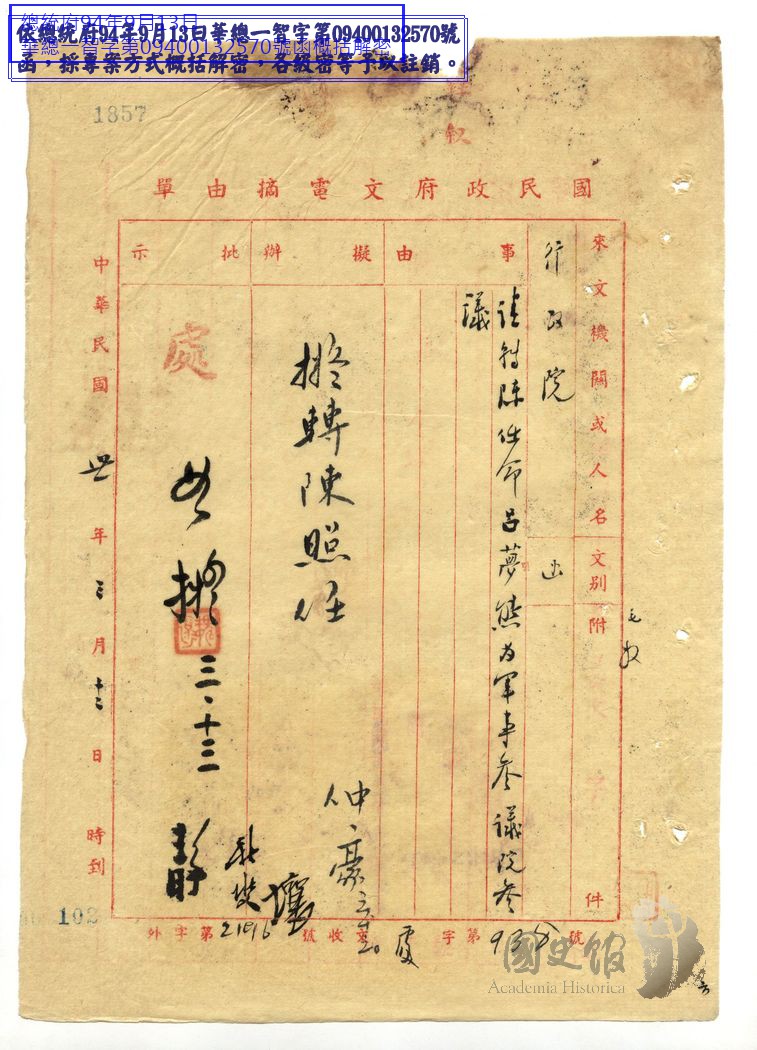 總統府94年9月13日
華總一智字第09400132570號函概括解密
依總統府94年9月13日華總一智字第09400132570號
函，採專案方式概括解密，各級密等予以註銷。
1857
叙
國民政府文電摘由單
來文機關或人名
行政院
文別
函
附
件
事由
請轉陳任命呂夢熊為軍事參議院參
議
擬辦
擬轉陳照任
仲豪
批示
處
如擬
三、十三
中華民國 卅年三月十二日 時到
102
字第 號
收文 號
外字第 號
國史館
Academia Historica